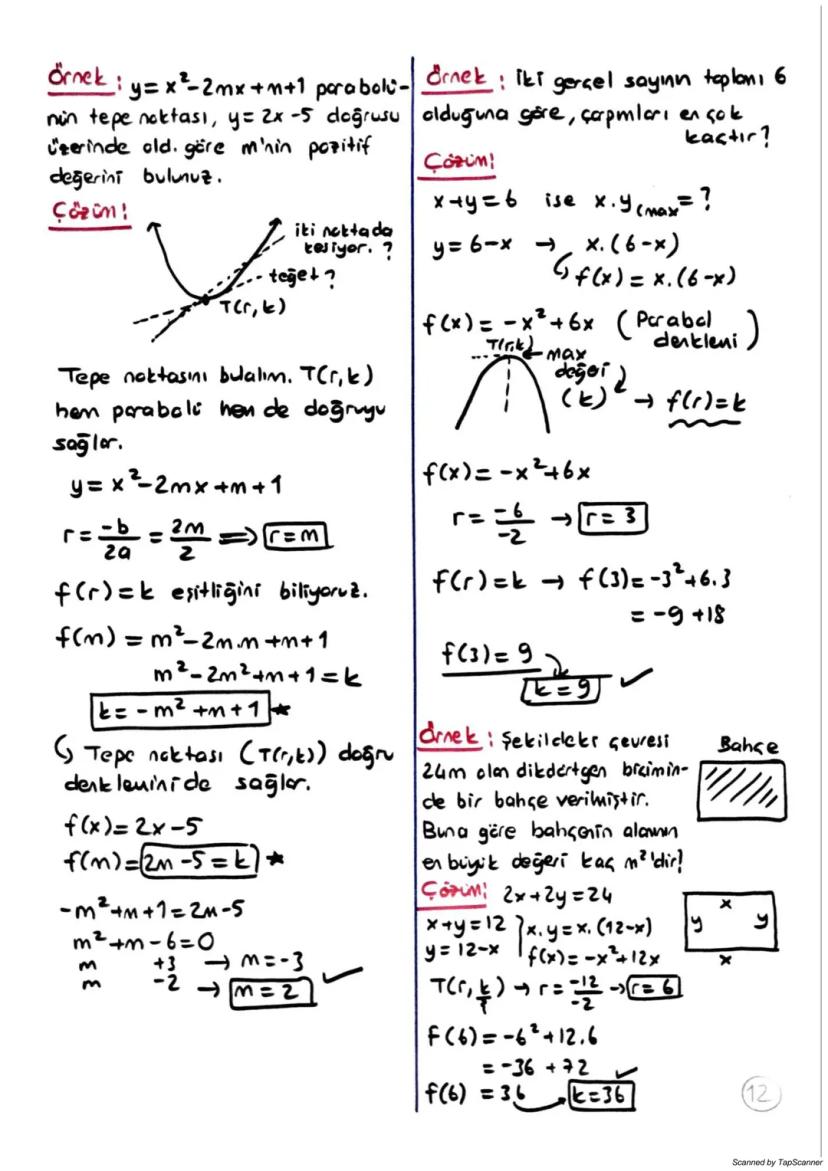 Örnek : y = x² - 2mx + m + 1 parabolü-
nün tepe noktası, y = 2x - 5 doğrusu
üzerinde old. göre m'nin pozitif
değerini bulunuz.
Çözüm:
iki noktada
kesiyor. ?
teğet ?
T(r, k)
Tepe noktasını bulalım. T(r, k)
hem parabolü hem de doğruyu
sağlar.
y = x² - 2mx + m + 1
r = -b/2a = 2m/2 ⟹ r = m
f(r) = k eşitliğini biliyoruz.
f(m) = m² - 2m.m + m + 1
m² - 2m² + m + 1 = k
k = -m² + m + 1 ★
↪ Tepe noktası (T(r,k)) doğru
denklemini de sağlar.
f(x) = 2x - 5
f(m) = 2m - 5 = k ★
-m² + m + 1 = 2m - 5
m² + m - 6 = 0
m +3 → m = -3
m -2 → m = 2 ✓
Örnek : İki gerçel sayının toplamı 6
olduğuna göre, çarpımları en çok
kaçtır?
Çözüm:
x + y = 6 ise x.y(max = ?
y = 6 - x → x.(6 - x)
↪ f(x) = x.(6 - x)
f(x) = -x² + 6x ( Parabol
denklemi )
T(r,k) ← max
değeri )
(k) → f(r) = k
f(x) = -x² + 6x
r = -6/-2 → r = 3
f(r) = k → f(3) = -3² + 6.3
= -9 + 18
f(3) = 9
k = 9 ✓
Örnek : Şekildeki çevresi
Bahçe
24m olan dikdörtgen biçimin-
de bir bahçe verilmiştir.
Buna göre bahçenin alanının
en büyük değeri kaç m²'dir?
Çözüm: 2x + 2y = 24
x + y = 12 } x.y = x.(12 - x)
y = 12 - x f(x) = -x² + 12x
x
y y
x
T(r, k) → r = -12/-2 → r = 6
?
f(6) = -6² + 12.6
= -36 + 72
f(6) = 36 k = 36 ✓
12
Scanned by TapScanner